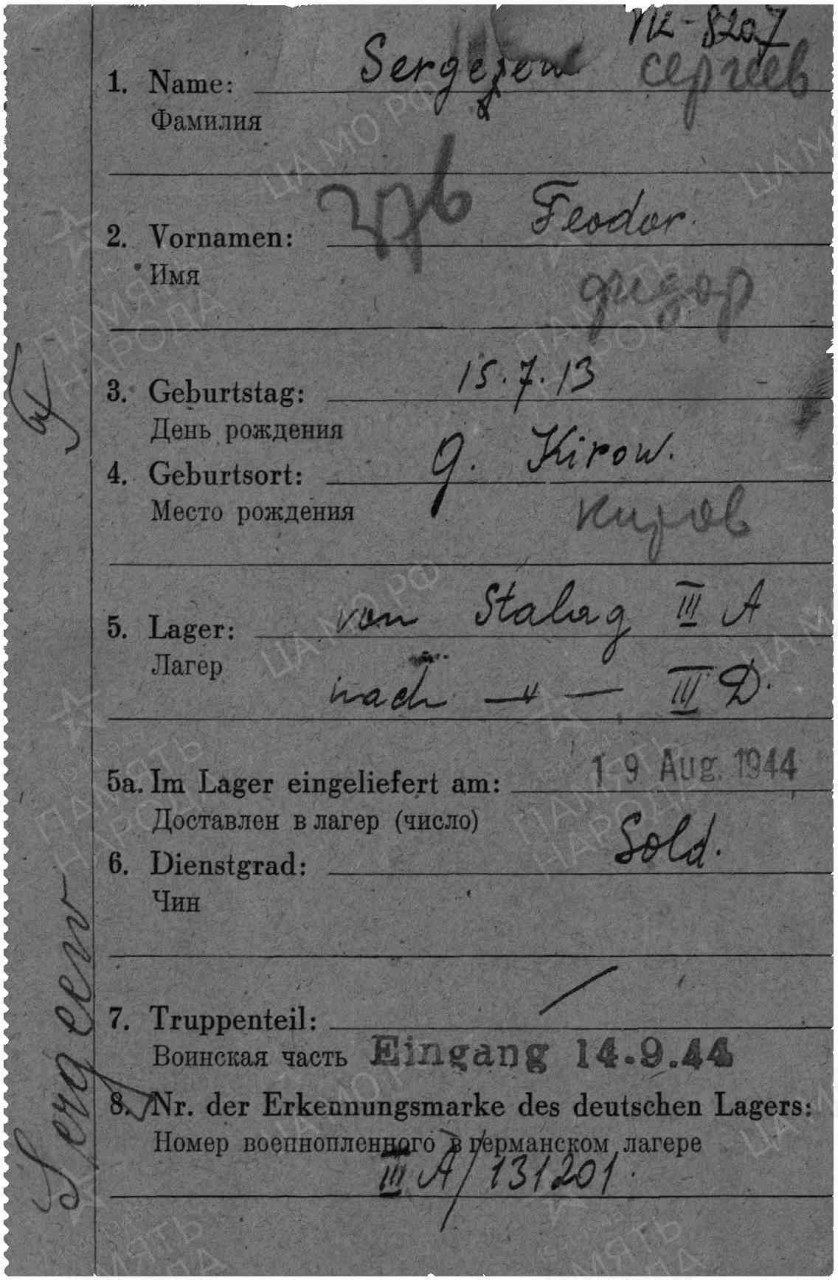 1. Name: Sergejew сергеев
Фамилия
2. Vornamen: Feodor.
Имя
фидор
3. Geburtstag: 15.7.13
День рождения
4. Geburtsort: g. Kirow.
Место рождения киров
5. Lager: von Stalag III A
Лагер
nach — " — III D.
5a. Im Lager eingeliefert am: 19 Aug. 1944
Доставлен в лагер (число)
6. Dienstgrad: Sold.
Чин
7. Truppenteil: /
Воинская часть Eingang 14.9.44
8. Nr. der Erkennungsmarke des deutschen Lagers:
Номер военнопленного в германском лагере
III A/131201.
Sergeew
ЦА МО РФ
ПАМЯТЬ
НАРОДА